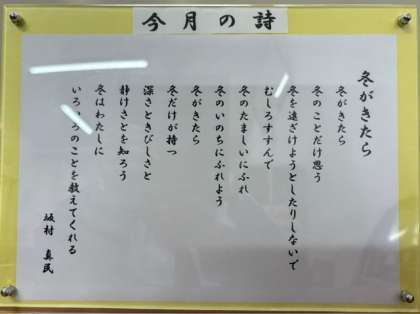 今月の詩
冬がきたら
冬がきたら
冬のことだけ思う
冬を遠ざけようとしたりしないで
むしろすすんで
冬のたましいにふれ
冬のいのちにふれよう
冬がきたら
冬だけが持つ
深さときびしさと
静けさとを知ろう
冬はわたしに
いろいろのことを教えてくれる
坂村 真民